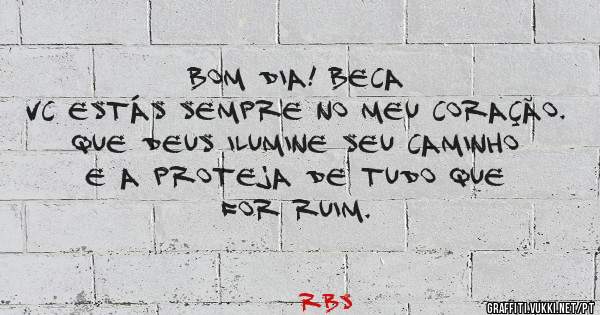 BOM DIA! BECA
VC ESTÁS SEMPRE NO MEU CORAÇÃO.
QUE DEUS ILUMINE SEU CAMINHO
E A PROTEJA DE TUDO QUE
FOR RUIM.
RBS
GRAFFITI.VUKKI.NET/PT